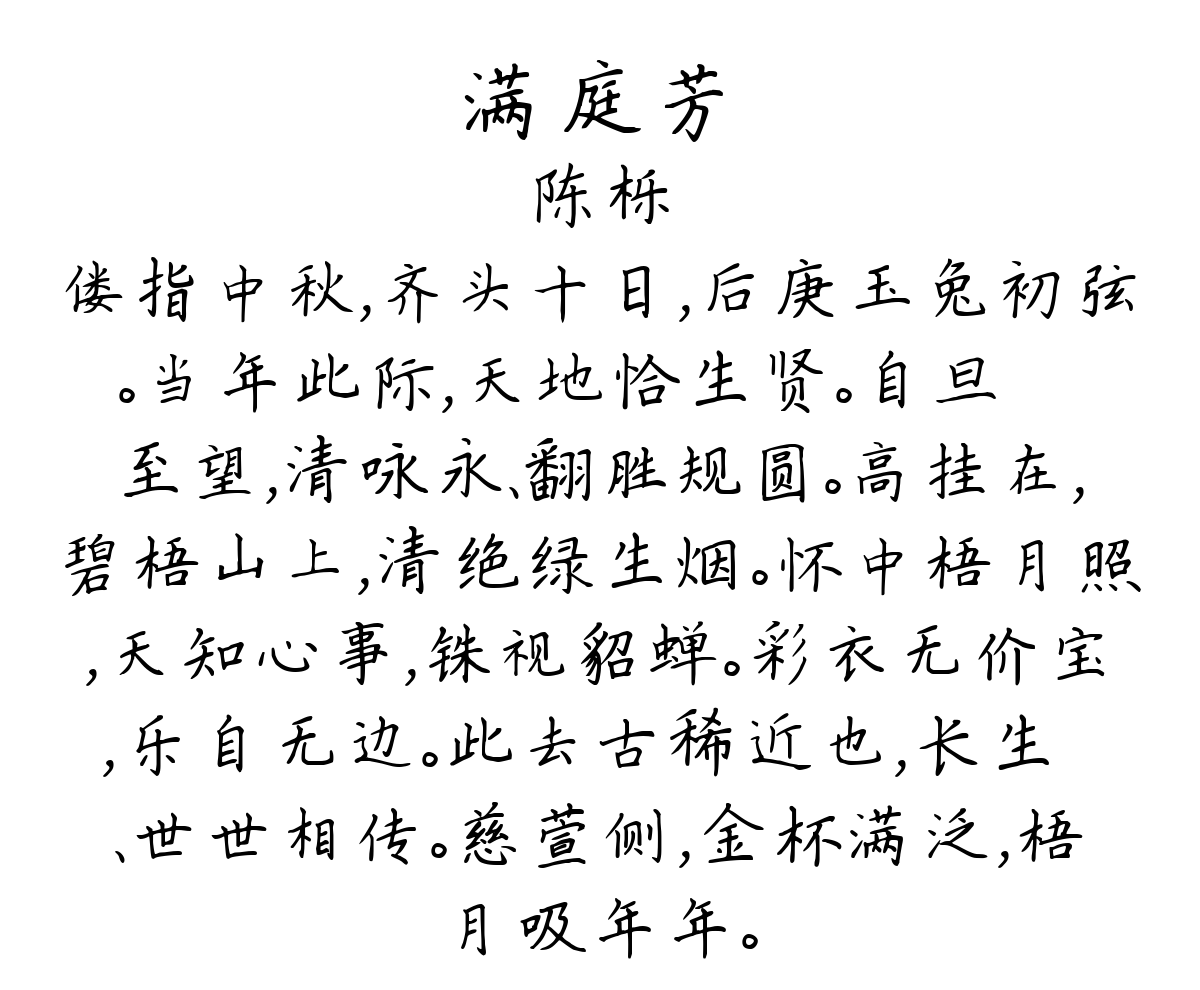 满庭芳
陈栎
偻指中秋,齐头十日,后庚玉兔初弦
。当年此际,天地恰生贤。自旦
至望,清咏永、翻胜规圆。高挂在,
碧梧山上,清绝绿生烟。怀中梧月照
,天知心事,铢视貂蝉。彩衣无价宝
,乐自无边。此去古稀近也,长生
、世世相传。慈萱侧,金杯满泛,梧
月吸年年。